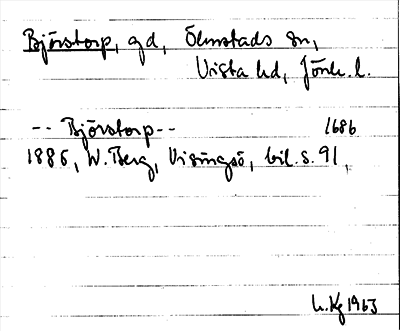 Björstorp, gd, Ölmstads sn,
Vista hd, Jönk. l.
-- Björstorp -- 1686
1885, W. Berg, Visingsö, bil. s. 91,
L. Kg 1963